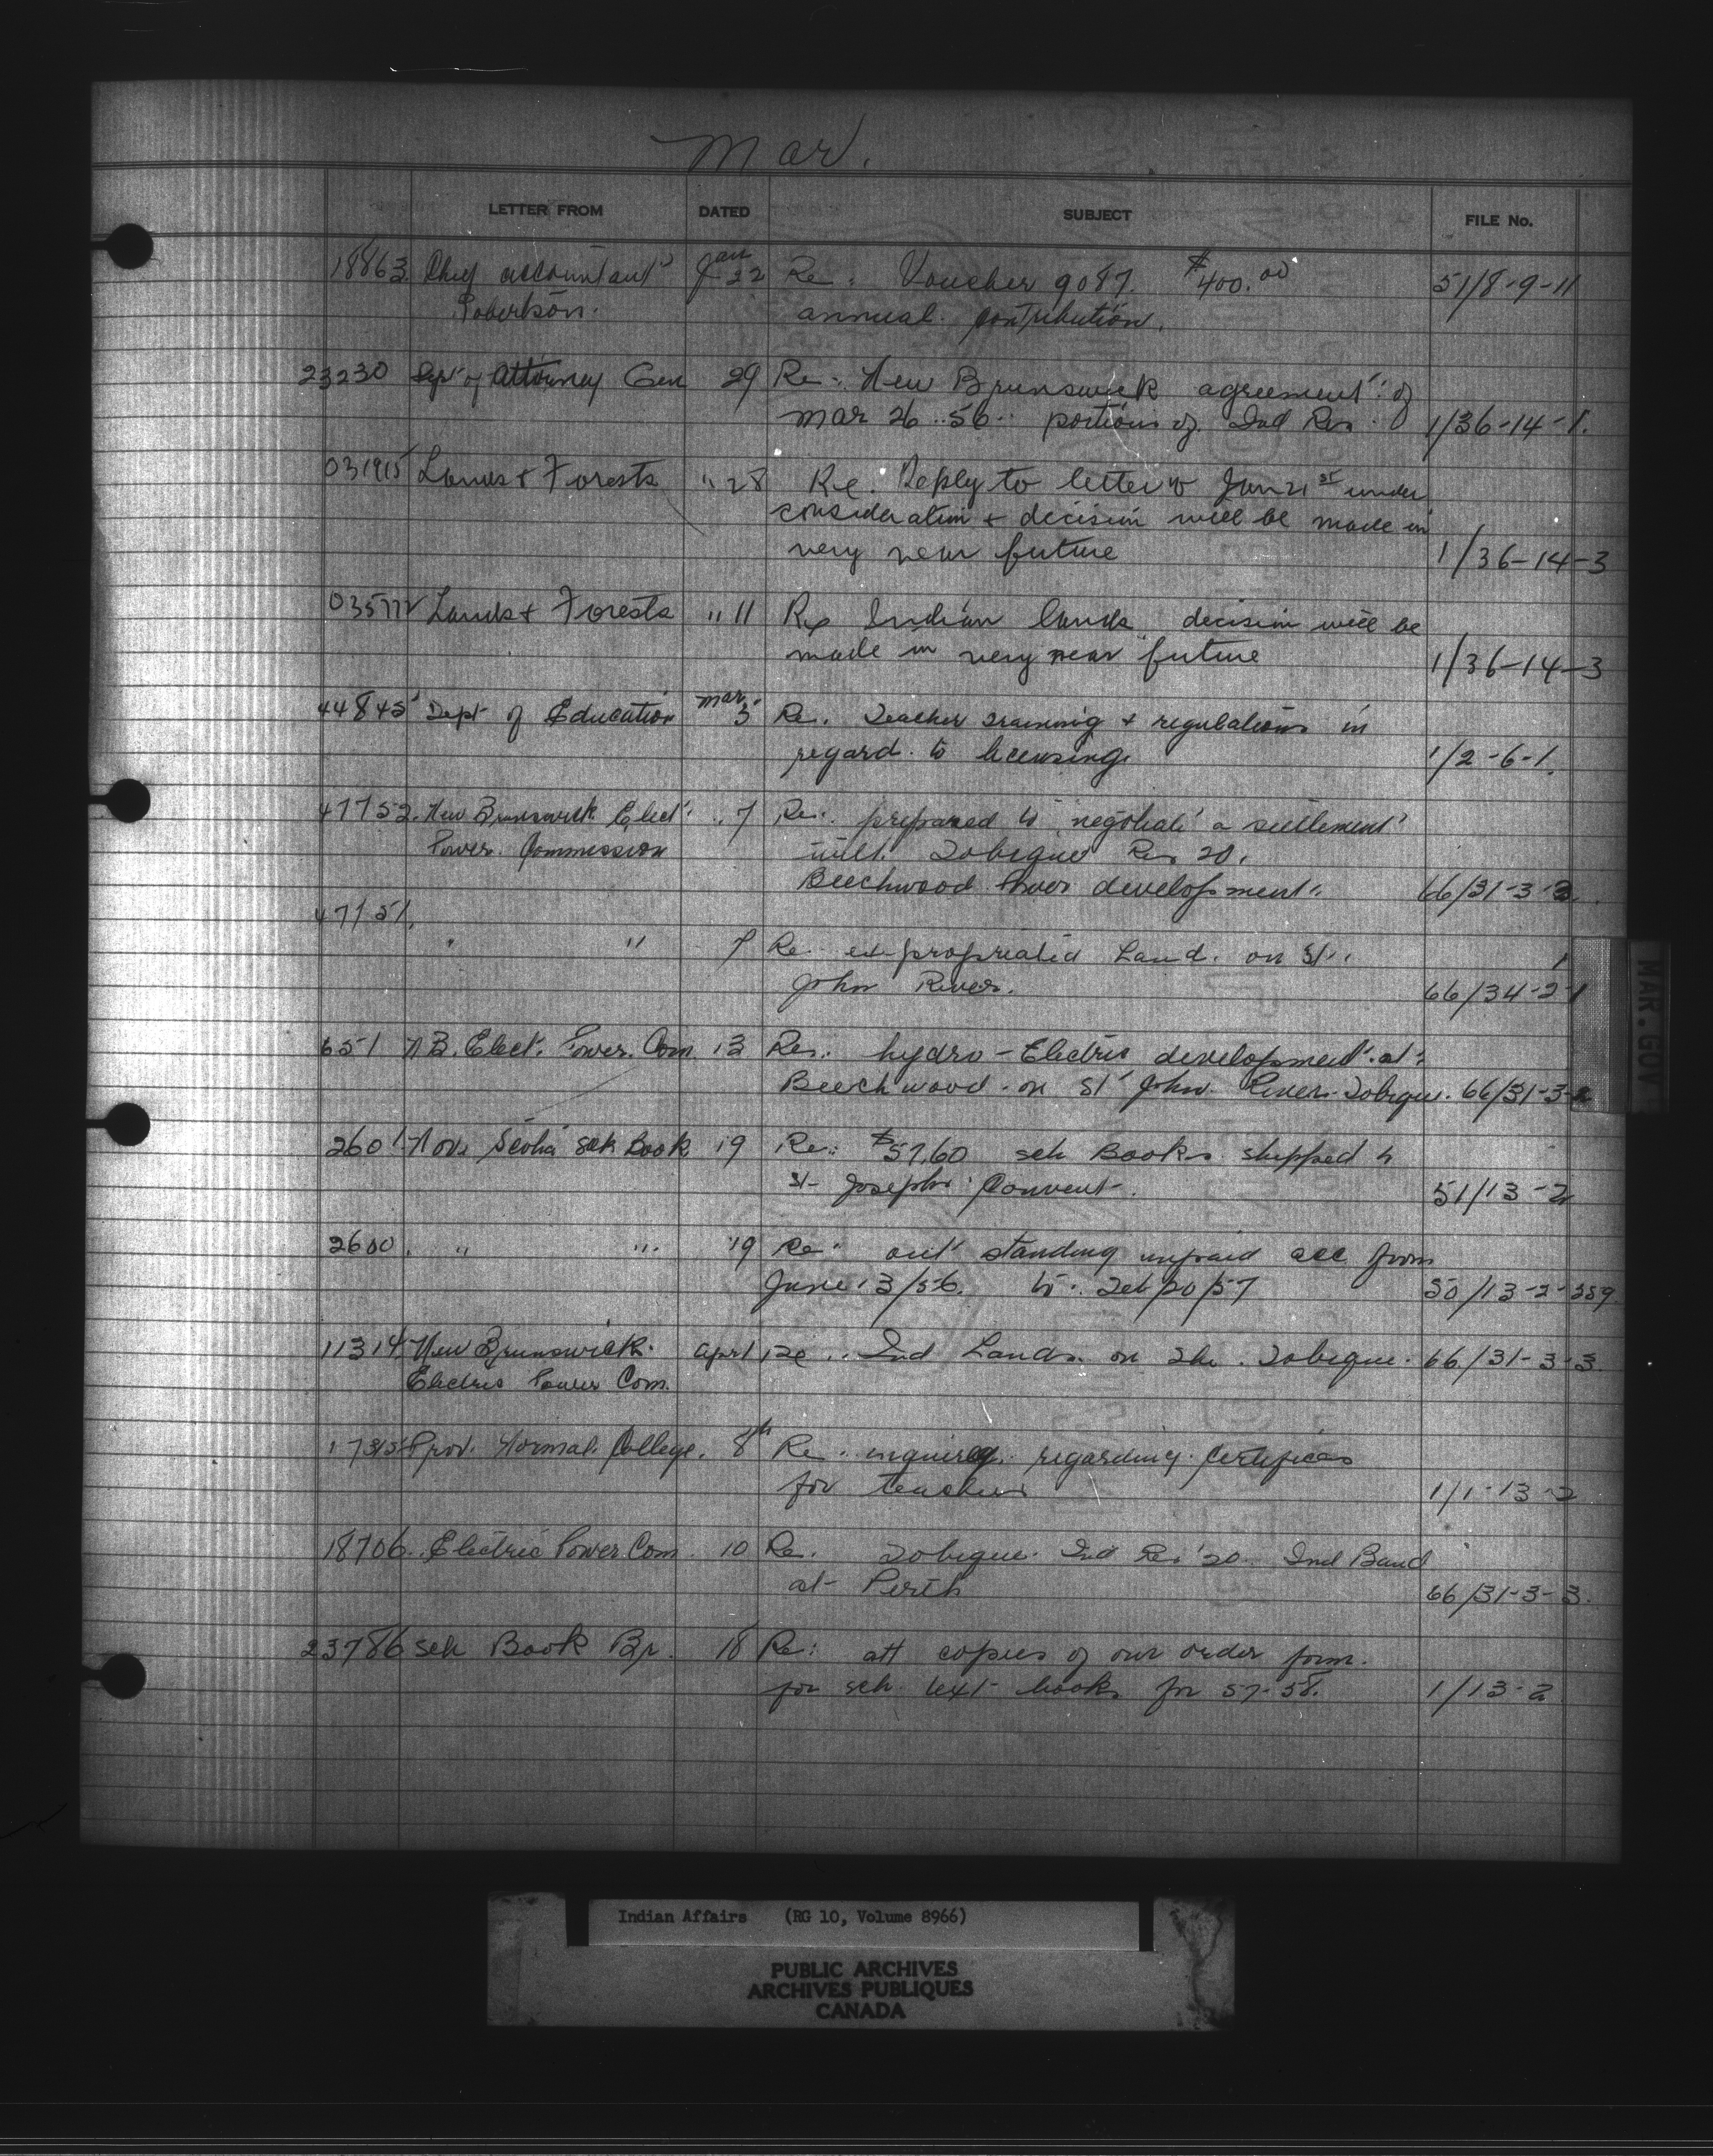 Mar.
LETTER FROM DATED SUBJECT FILE No.
18863 Chief accountant Jan 22 Re: Voucher 9087. $400.00 51/8-9-11
Robertson. annual contribution.
23230 Dept of Attorney Gen 29 Re: New Brunswick agreement of
Mar 26..56.. portions of Ind Res. 1/36-14-1.
031915 Lands & Forests " 28 Re. Reply to letter Jan 21st under
consideration & decision will be made in
very near future 1/36-14-3
Lands & Forests " 11 Re Indian lands decision will be
made in very near future 1/36-14-3
44845 Dept of Education Mar 5 Re. Teacher training & regulations in
regard to licensing. 1/2-6-1.
47752. New Brunswick Elect. " 7 Re: prepared to negotiate a settlement
Power Commission with Tobique Res 20.
Beechwood Power development. 66/31-3-3.
" " 7 Re expropriated Land. on St.
John River. 66/34-2-1
651 N B. Elect. Power. Com 13 Re: hydro-Electric development at
Beechwood on St John River. Tobique. 66/31-3-
2601 Nova Scotia sch Book 19 Re: $57.60 sch Books shipped to
St Josephs Convent. 51/13-2
2600 " " 19 Re: out standing unpaid acc from
June 13/56. to Feb/20/57 50/13-2-259.
11314 New Brunswick April 1 Re.. Ind Lands on the Tobique. 66/31-3-3.
Electric Power Com.
17315 Prov. Normal College. 8th Re inquiry regarding
for teachers 1/1-13-2
18706. Electric Power Com 10 Re. Tobique Ind Res 20 Ind Band
at Perth 66/31-3-3.
23786 sch Book Br. 18 Re: att copies of our order form.
for sch. text books for 57-58. 1/13-2
MAR. GOV
Indian Affairs (RG 10, Volume 8966)
PUBLIC ARCHIVES
ARCHIVES PUBLIQUES
CANADA